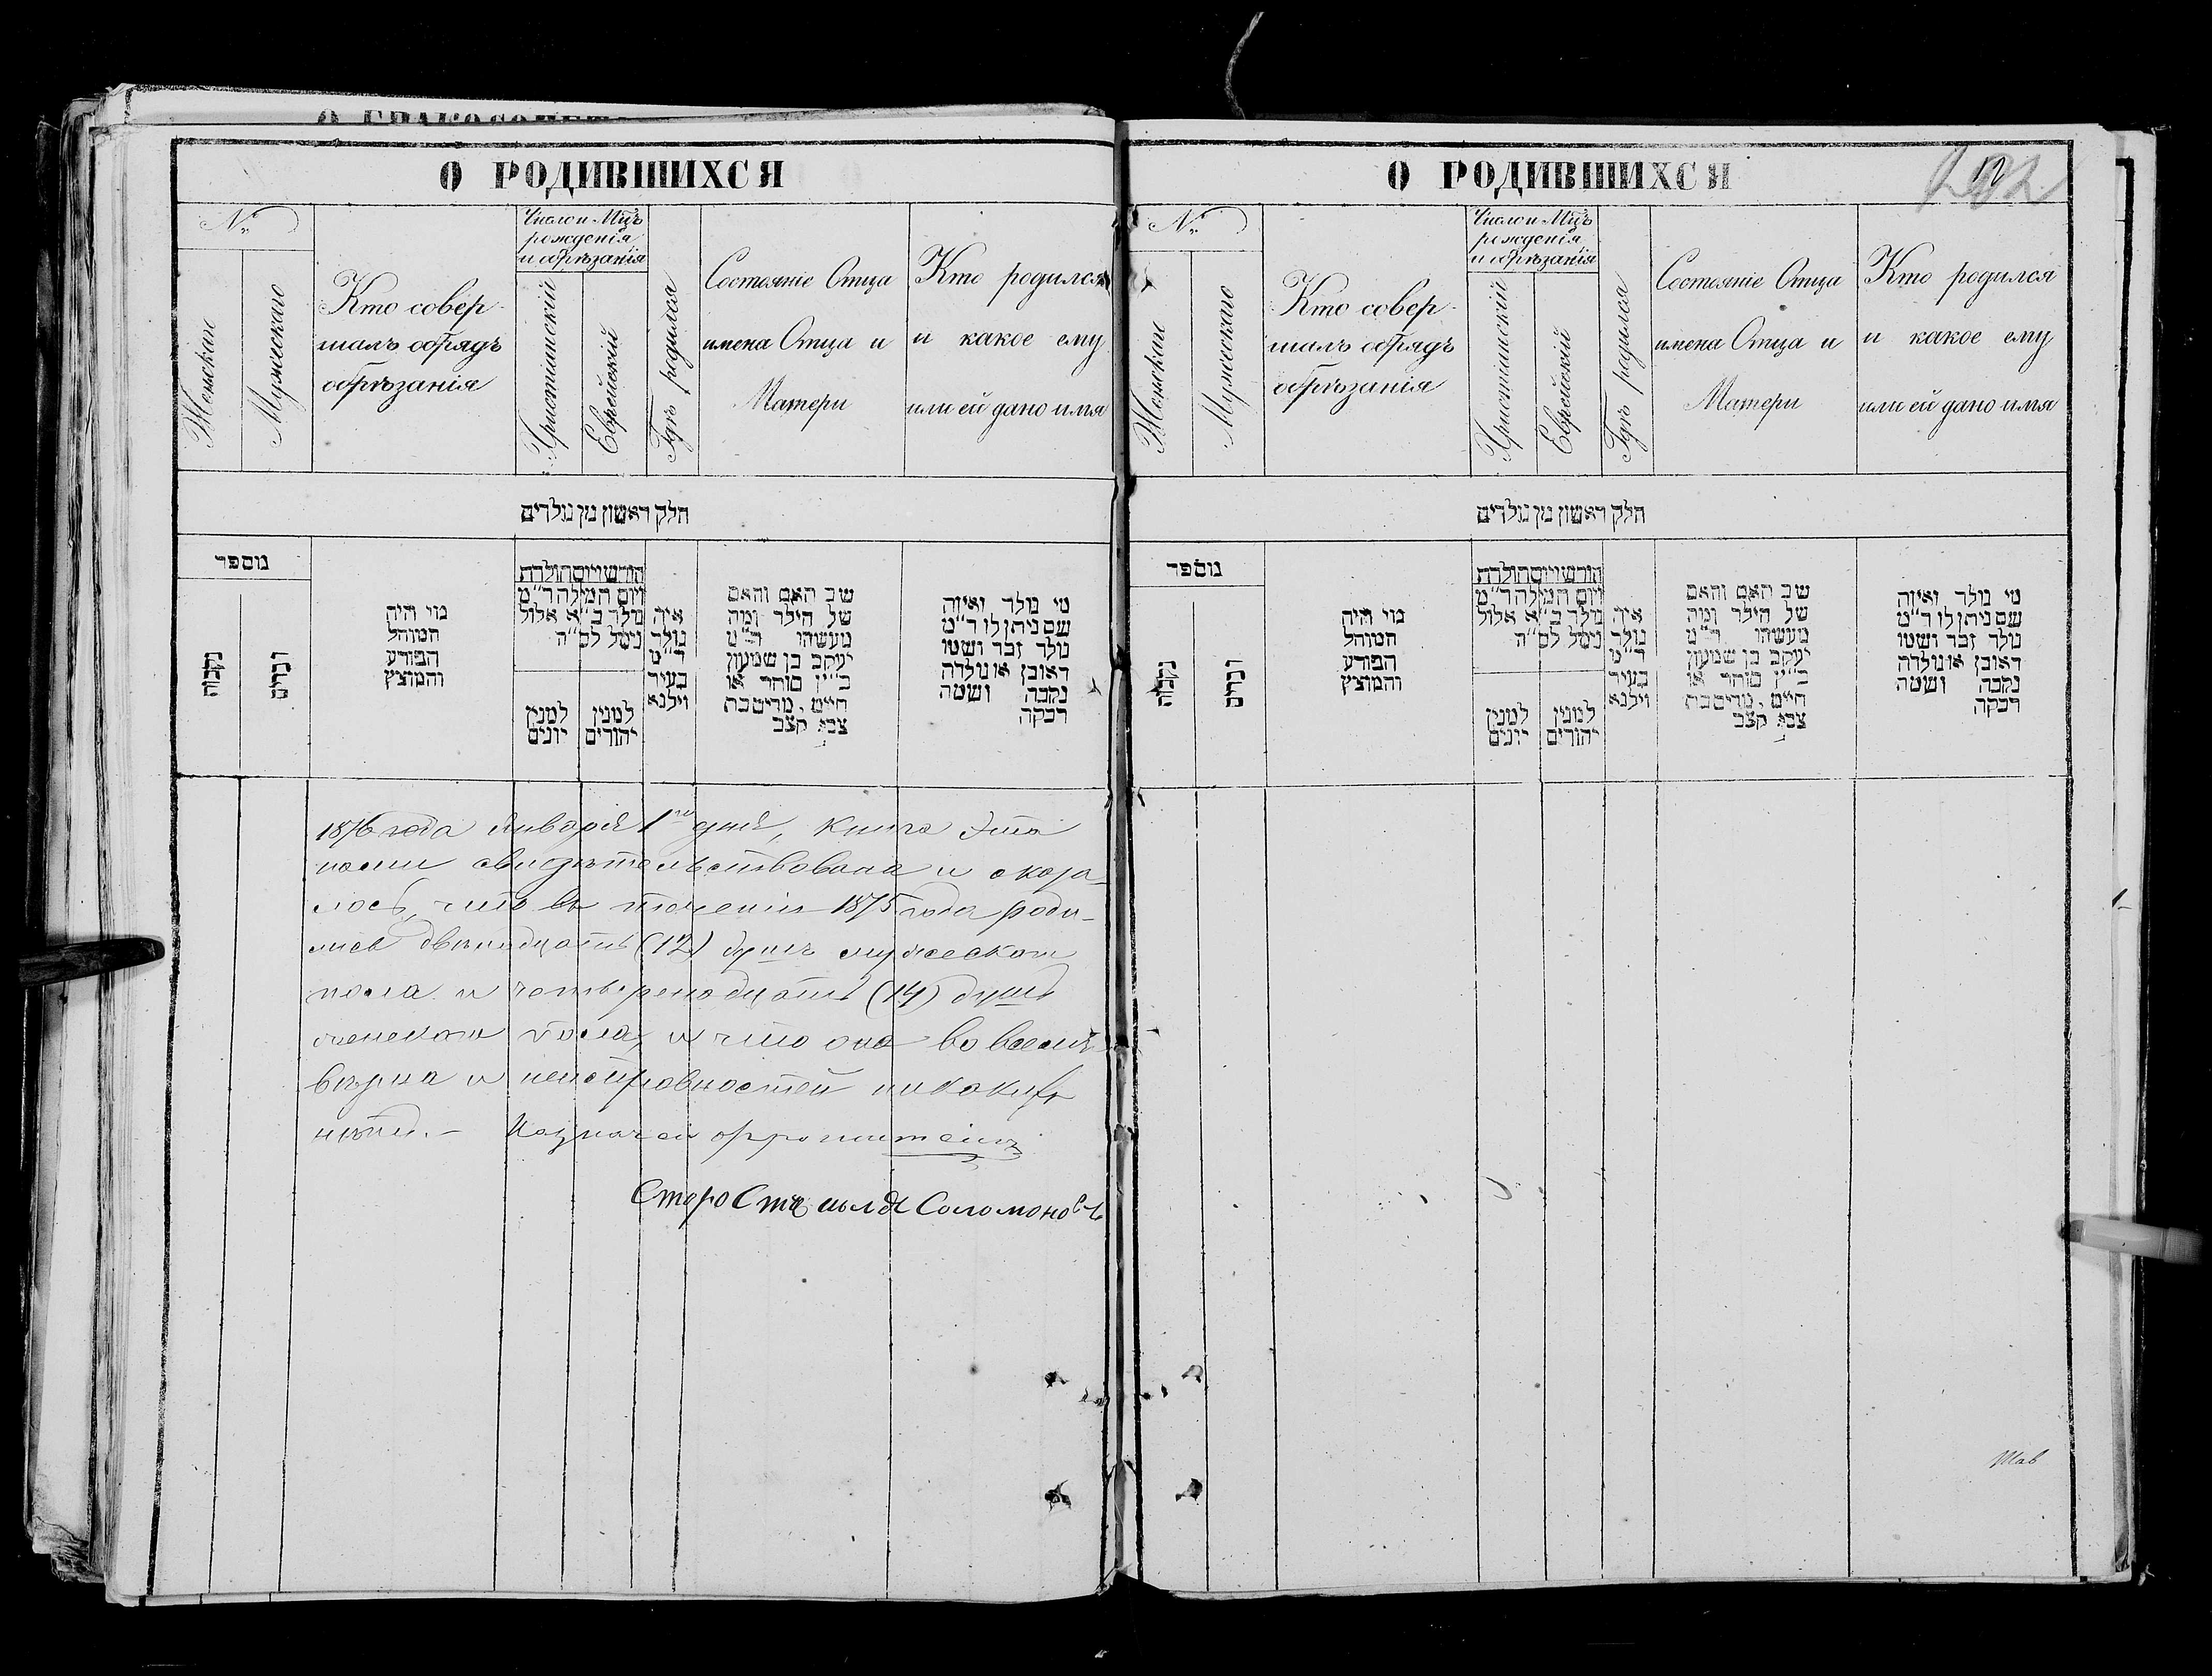 О РОДИВШИХСЯ
№
Женскаго
Мужескаго
Кто совер-
шалъ обрядъ
обрѣзанія
Число и Мцъ
рожденія
и обрѣзанія
Христіанскій
Еврейскій
Гдѣ родился
Состояніе Отца
имена Отца и
Матери
Кто родился
и какое ему
или ей дано имя
חלק ראשון מן נולדים
מוספר
נקבות
זכרים
מי היה
המוהל
הפורע
והמוצץ
חודש ויום הולדת
ויום המילה ד"מ
נולד ב"א אלול
נימל לס"ה
למנין
יונים
למנין
יהודים
איה
נולד
ד"מ
בעיר
וילנא
שם האב והאם
של הילד ומה
מעשהו ד"מ
יעקב בן שמעון
כ"ץ סוחר או
חייט, מרים בת
צבי קצב
מי נולד ואיזה
שם ניתן לו ד"מ
נולד זכר ושמו
ראובן או נולדה
נקבה ושמה
רבקה
1876 года Января 1го дня, книга эта
нами свидѣтельствована и оказа-
лось, что въ теченіи 1875 года роди-
лись двѣнадцать (12) душъ мужескаго
пола и четырнадцать (14) душъ
женскаго пола, и что она во всемъ
вѣрна и неисправностей никакихъ
нѣтъ. - Казначей
Староста Соломоновъ
О РОДИВШИХСЯ
№
Женскаго
Мужескаго
Кто совер-
шалъ обрядъ
обрѣзанія
Число и Мцъ
рожденія
и обрѣзанія
Христіанскій
Еврейскій
Гдѣ родился
Состояніе Отца
имена Отца и
Матери
Кто родился
и какое ему
или ей дано имя
חלק ראשון מן נולדים
מוספר
נקבות
זכרים
מי היה
המוהל
הפורע
והמוצץ
חודש ויום הולדת
ויום המילה ד"מ
נולד ב"א אלול
נימל לס"ה
למנין
יונים
למנין
יהודים
איה
נולד
ד"מ
בעיר
וילנא
שם האב והאם
של הילד ומה
מעשהו ד"מ
יעקב בן שמעון
כ"ץ סוחר או
חייט, מרים בת
צבי קצב
מי נולד ואיזה
שם ניתן לו ד"מ
נולד זכר ושמו
ראובן או נולדה
נקבה ושמה
רבקה